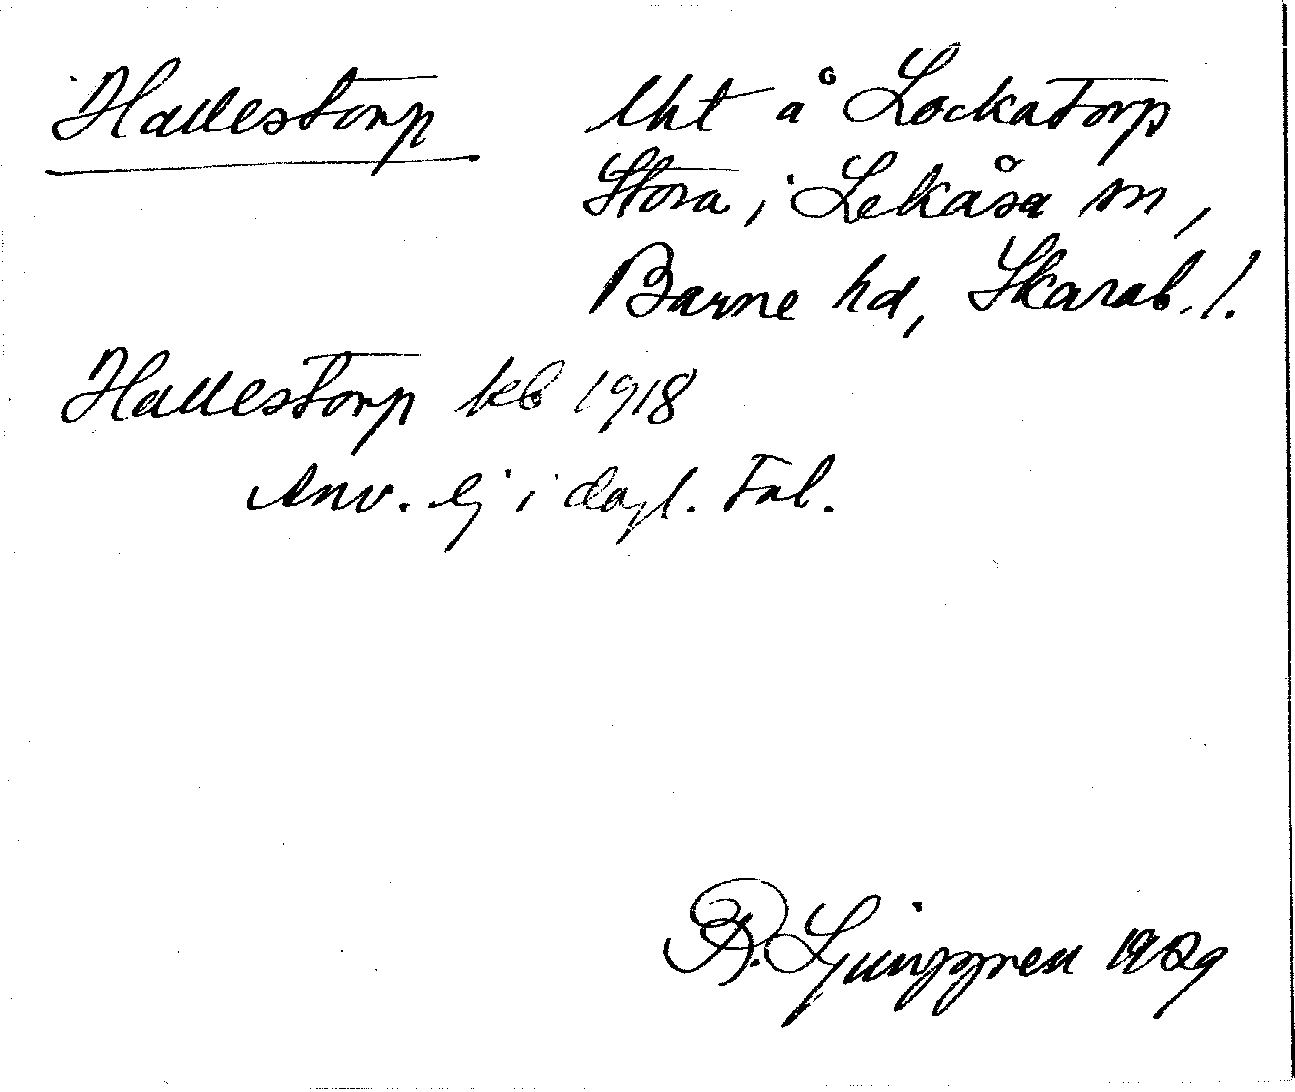 Hallestorp
lht å Lockatorp
Stora i Lekåsa sn,
Barne hd, Skarab. l.
Hallestorp kb 1918
Anv. ej i dagl. tal.
R. Ljunggren 1929